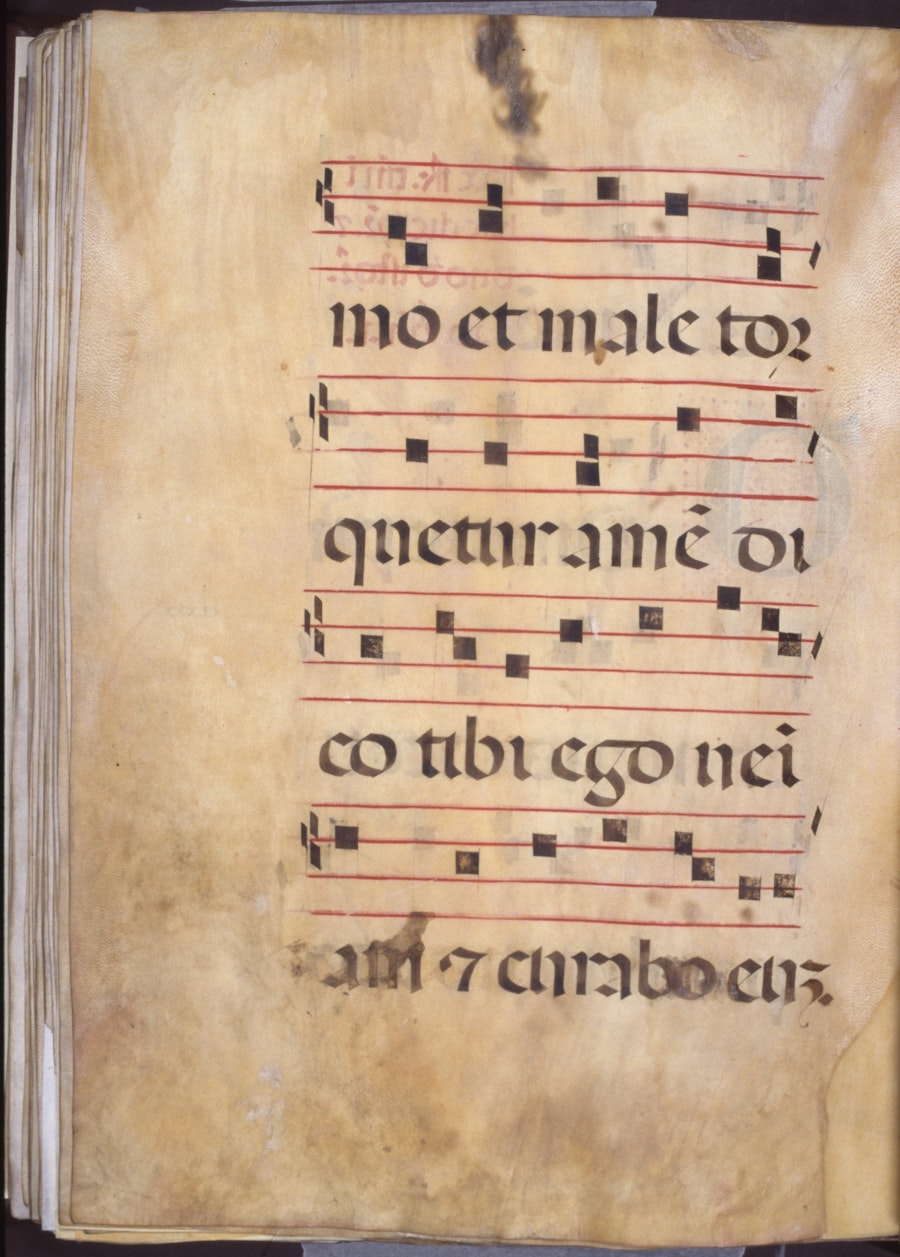 mo et male tor
quetur amē di
co tibi ego nei
am ⁊ curabo euꝫ.